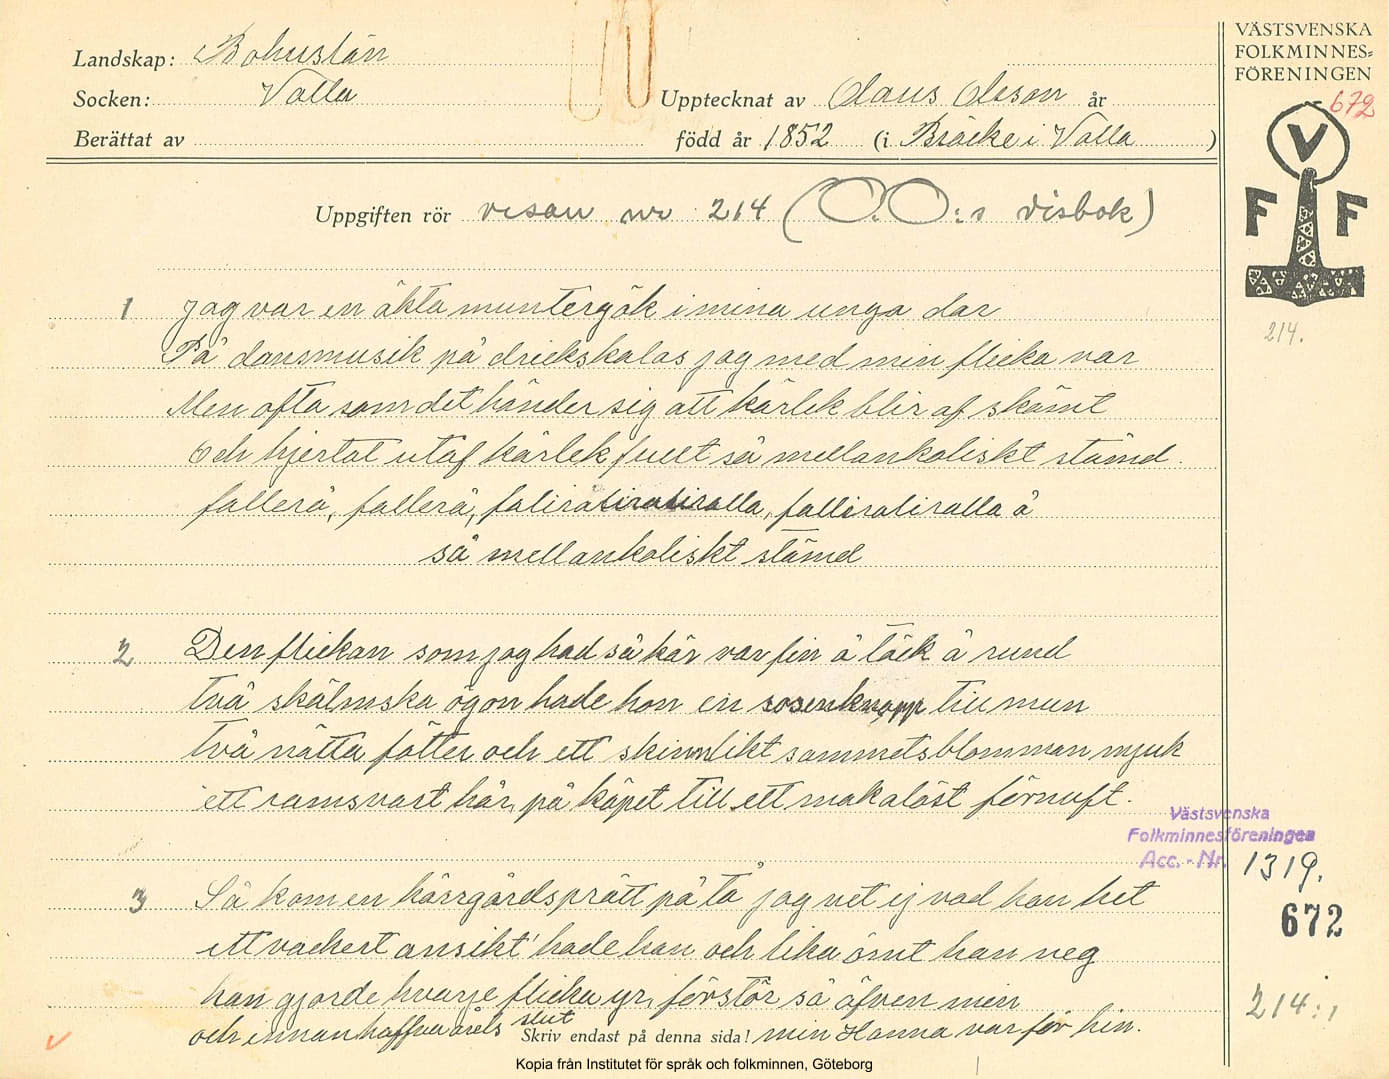 Landskap: Bohuslän
Socken: Valla
Upptecknat av Olaus Olsson år
Berättat av
född år 1852 (i Bräcke i Valla )
VÄSTSVENSKA
FOLKMINNES=
FÖRENINGEN
672
V
F F
214.
Uppgiften rör visan nr 214 (O. O:s visbok)
1 jag var en äkta muntergök i mina unga dar
På dansmusik på drickskalas jag med min flicka var
Men ofta som det händer sig att kärlek blir af skämt
Och hjertat utaf kärlek fullt så mellankoliskt stämd.
fallerä, fallerä, faliraliraliralla, falliraliralla ä
så mellankoliskt stämd
2 Den flickan som jag had så kär var fin å täck å rund
två skälmska ögon hade hon en rosenknopp till mun
två nätta fötter och ett skinn likt sammetsblomman mjuk
ett ramsvart hår, på köpet till ett makalöst förnuft.
Västsvenska
Folkminnesföreningen
Acc. - Nr. 1319.
672
3 Så kom en härrgårdsprätt på tå jag vet ej vad han het
ett vackert ansikt' hade han och lika ömt han neg
han gjorde hvarje flicka yr, förstör så äfven min
och innan halfva årets slut min Hanna var för hin.
214:1
Skriv endast på denna sida!
Kopia från Institutet för språk och folkminnen, Göteborg